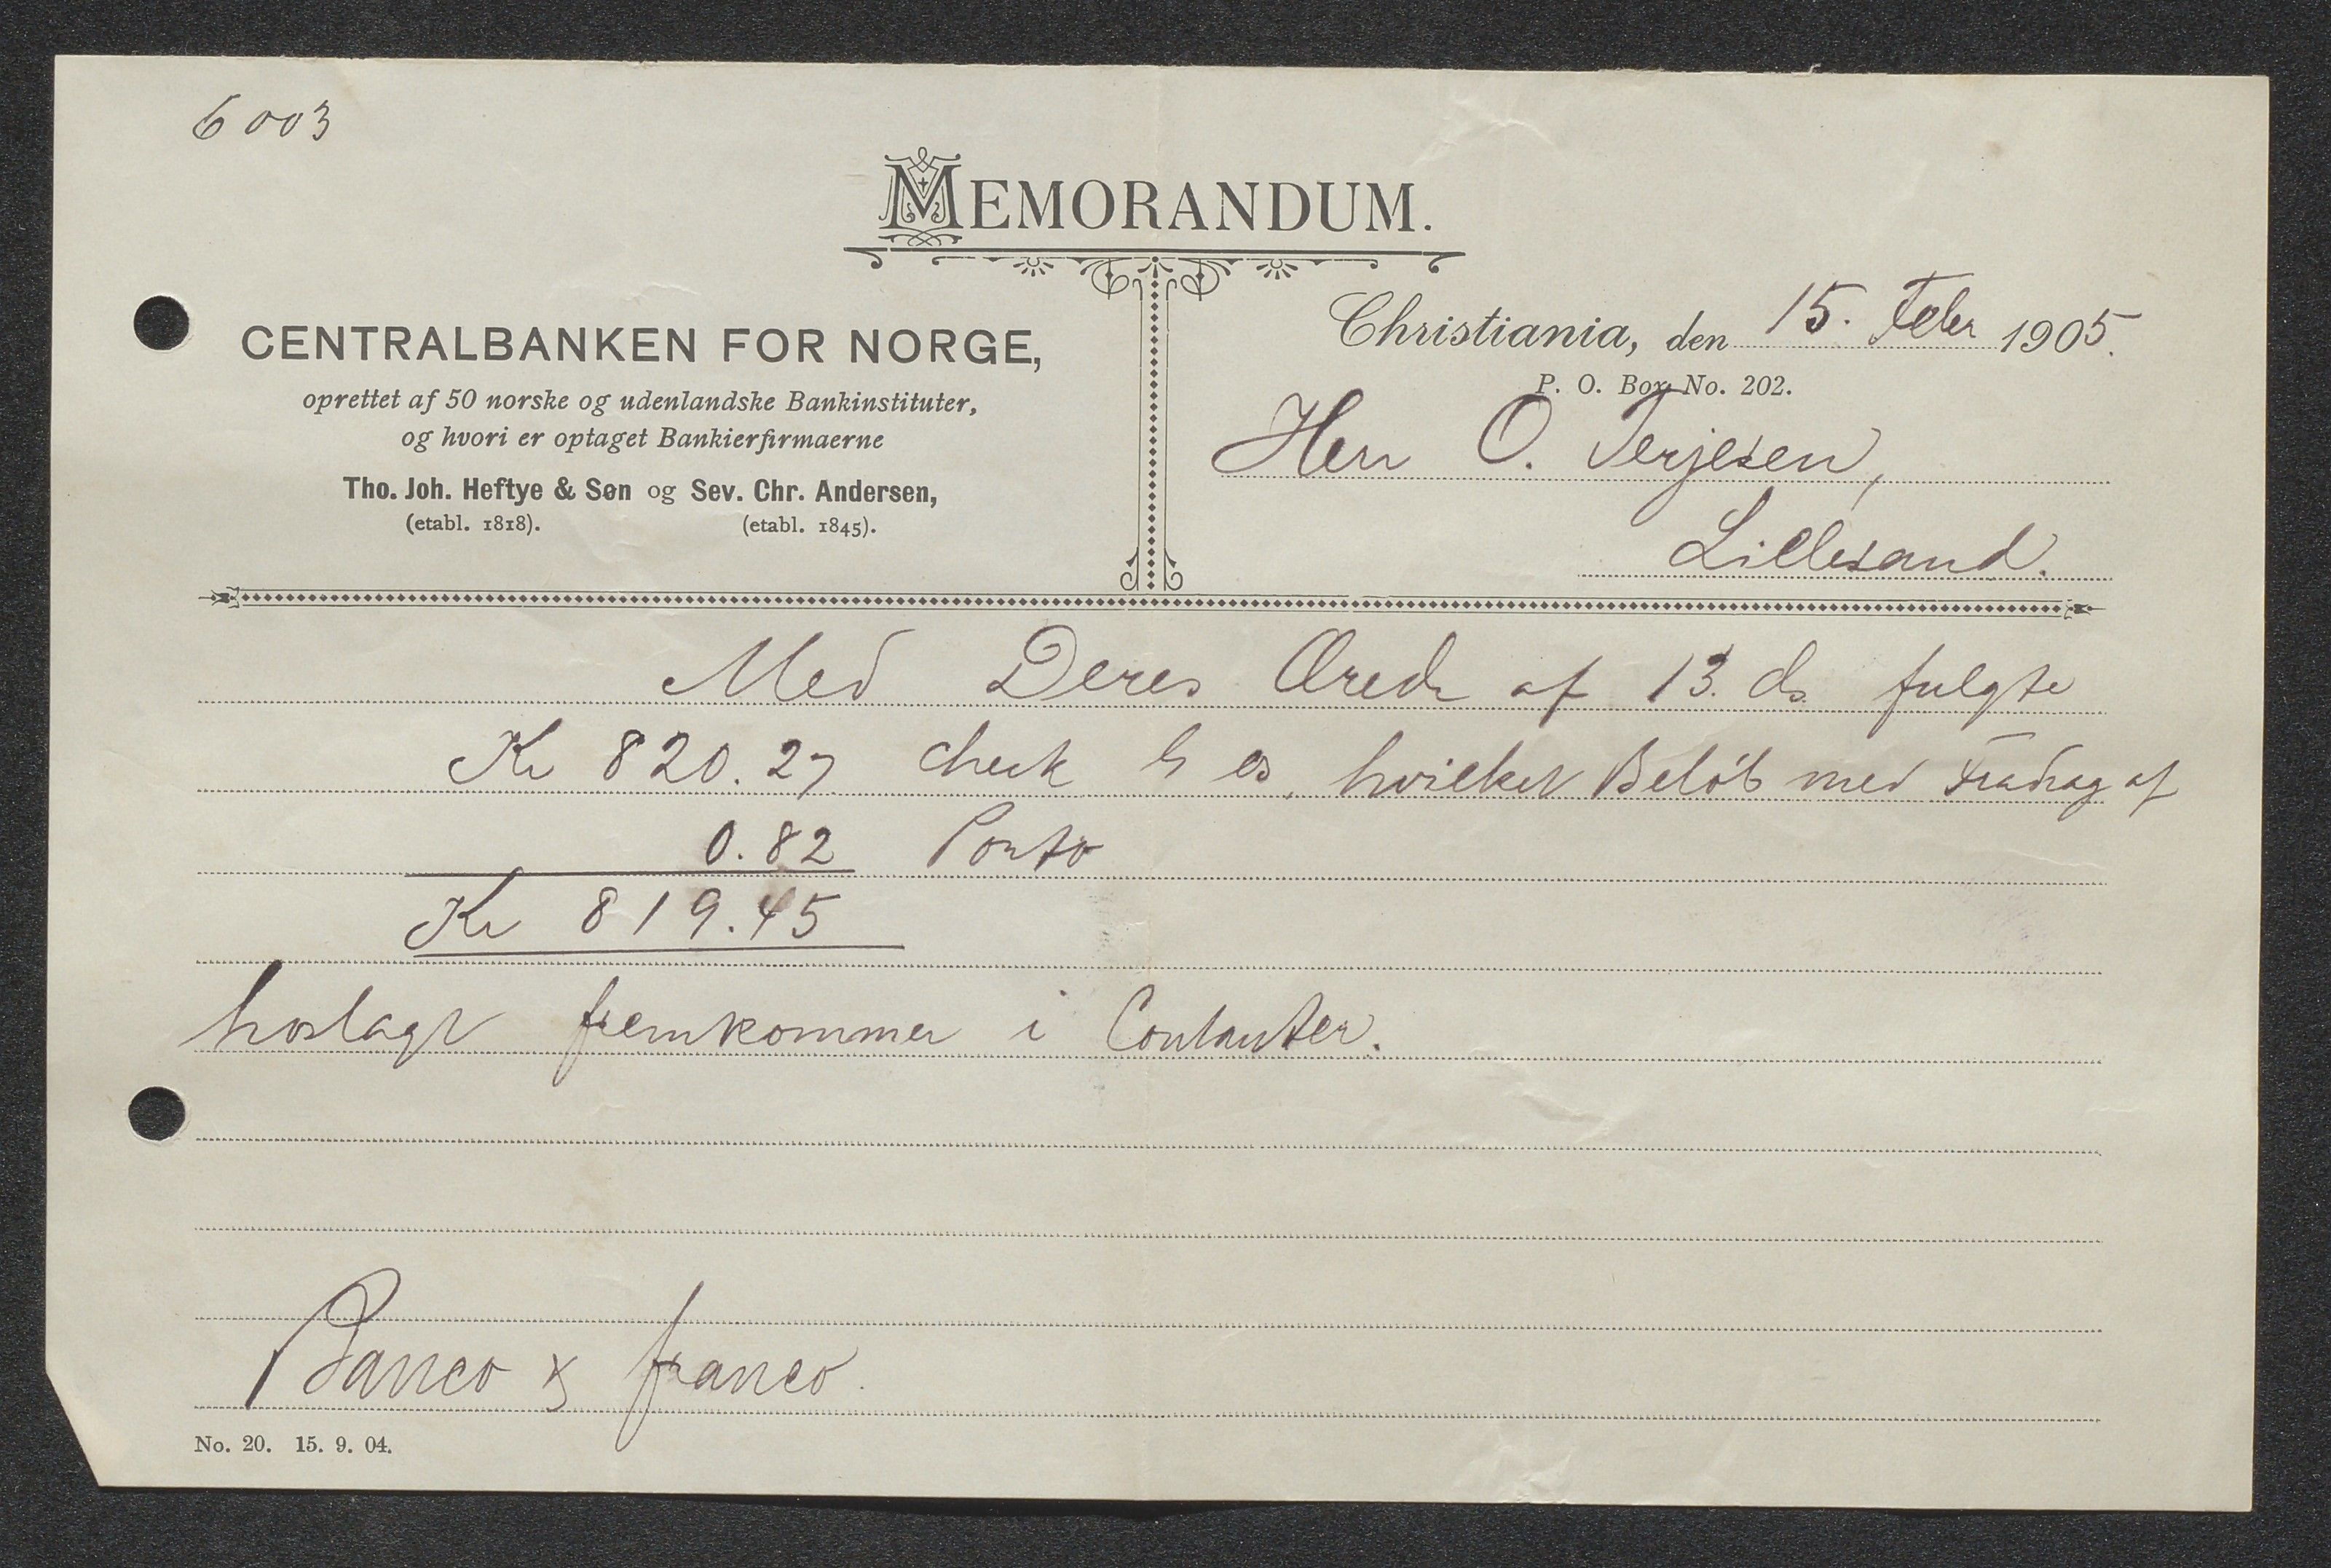 6003
MEMORANDUM.
CENTRALBANKEN FOR NORGE,
oprettet af 50 norske og udenlandske Bankinstituter,
og hvori er optaget Bankierfirmaerne
Tho. Joh. Heftye & Søn og Sev. Chr. Andersen,
(etabl. 1818). (etabl. 1845).
Christiania, den 15. Febr 1905.
P. O. Box No. 202.
Herr O. Terjesen,
Lillesand.
Med Deres Ærede af 13. ds. fulgte
Kr 820.27 check h/ os, hvilket Beløb med Fradrag af
0.82 Porto
Kr 819.45
hoslagt fremkommer i Contanter.
Banco & franco.
No. 20. 15. 9. 04.